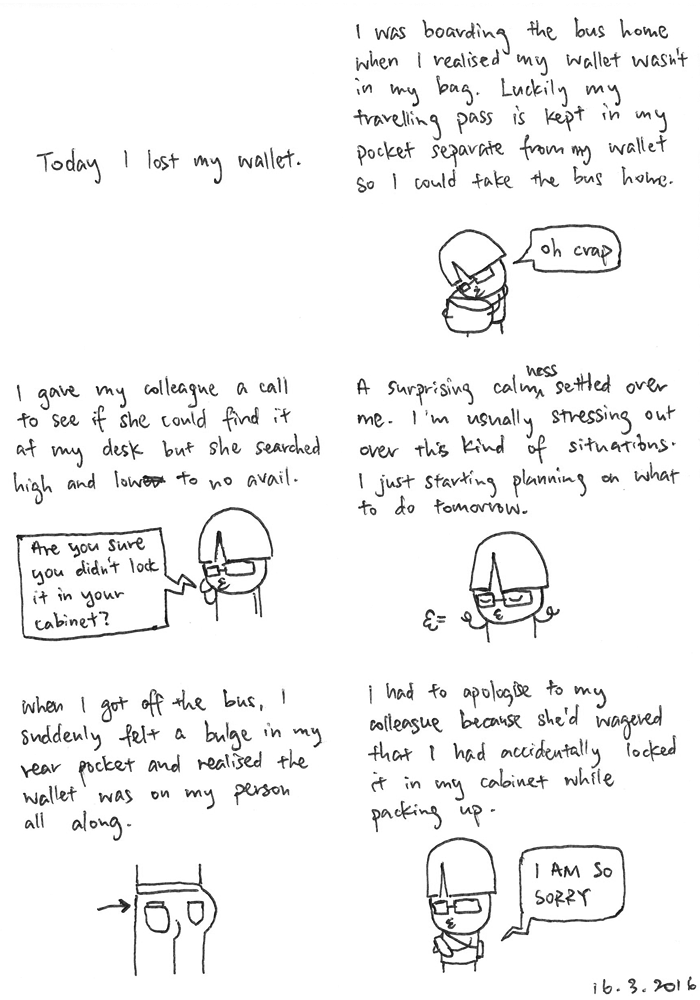 Today I lost my wallet.
I was boarding the bus home
when I realised my wallet wasn't
in my bag. Luckily my
travelling pass is kept in my
pocket separate from my wallet
so I could take the bus home.
oh crap
I gave my colleague a call
to see if she could find it
at my desk but she searched
high and low to no avail.
Are you sure
you didn't lock
it in your
cabinet?
A surprising calmness settled over
me. I'm usually stressing out
over this kind of situations.
I just starting planning on what
to do tomorrow.
When I got off the bus, I
suddenly felt a bulge in my
rear pocket and realised the
wallet was on my person
all along.
I had to apologise to my
colleague because she'd wagered
that I had accidentally locked
it in my cabinet while
packing up.
I AM SO
SORRY
16.3.2016